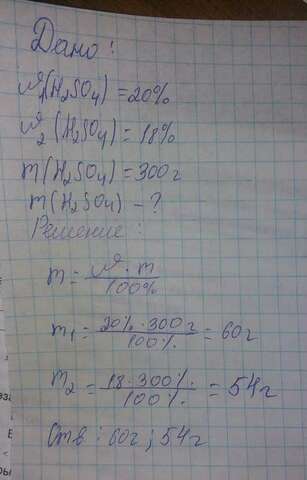 Дано:
ω₁(H₂SO₄) = 20%
ω₂(H₂SO₄) = 18%
m(H₂SO₄) = 300г
m(H₂SO₄) - ?
Решение:
m = ω · m / 100%
m₁ = 20% · 300г / 100% = 60г
m₂ = 18 · 300% / 100% = 54г
Отв: 60г; 54г